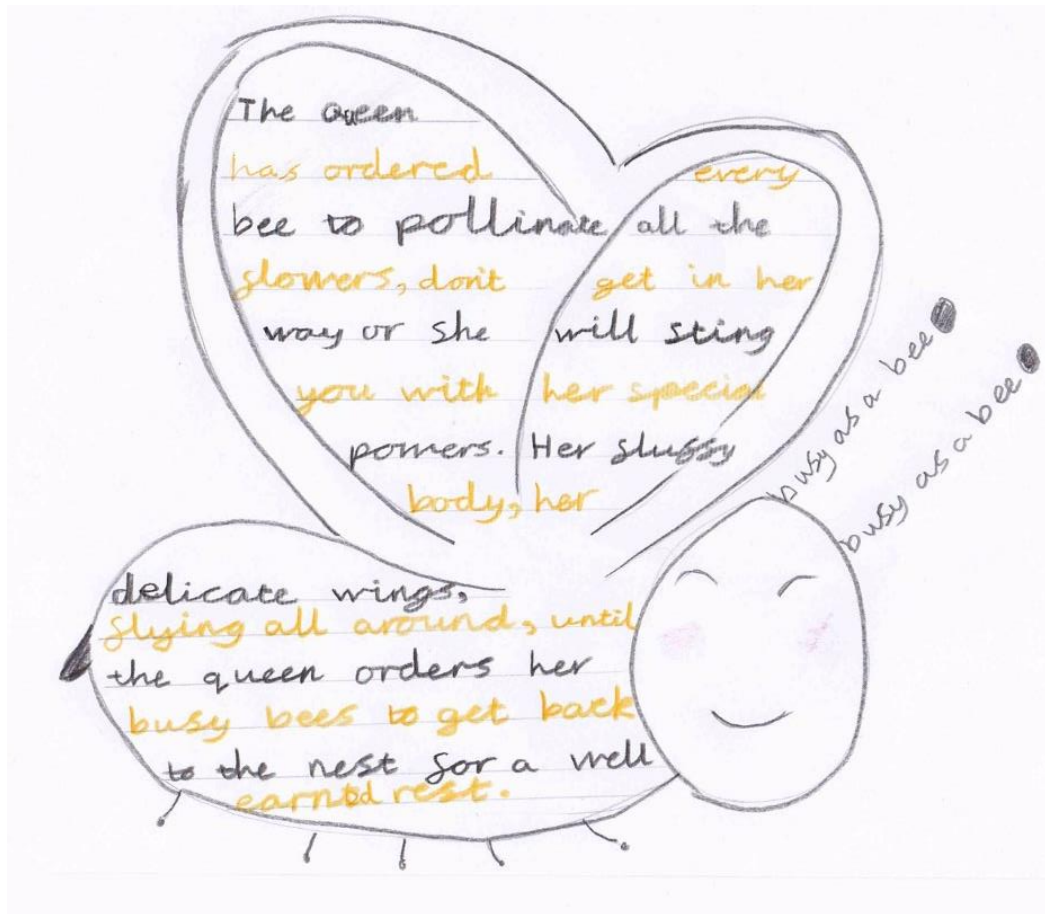 The Queen
has ordered every
bee to pollinate all the
flowers, don't get in her
way or she will sting
you with her special
powers. Her fluffy
body, her
delicate wings,
flying all around, until
the queen orders her
busy bees to get back
to the nest for a well
earned rest.
busy as a bee
busy as a bee